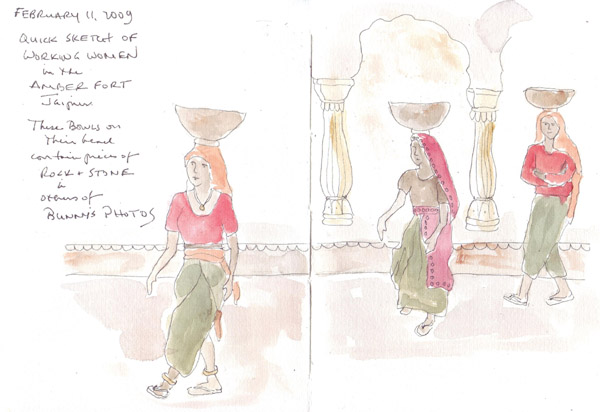 FEBRUARY 11, 2009
QUICK SKETCH OF
WORKING WOMEN
in the
AMBER FORT
Jaipur
These Bowls on
Their head
contain pieces of
ROCK & STONE
&
others of
BUNNY'S PHOTOS